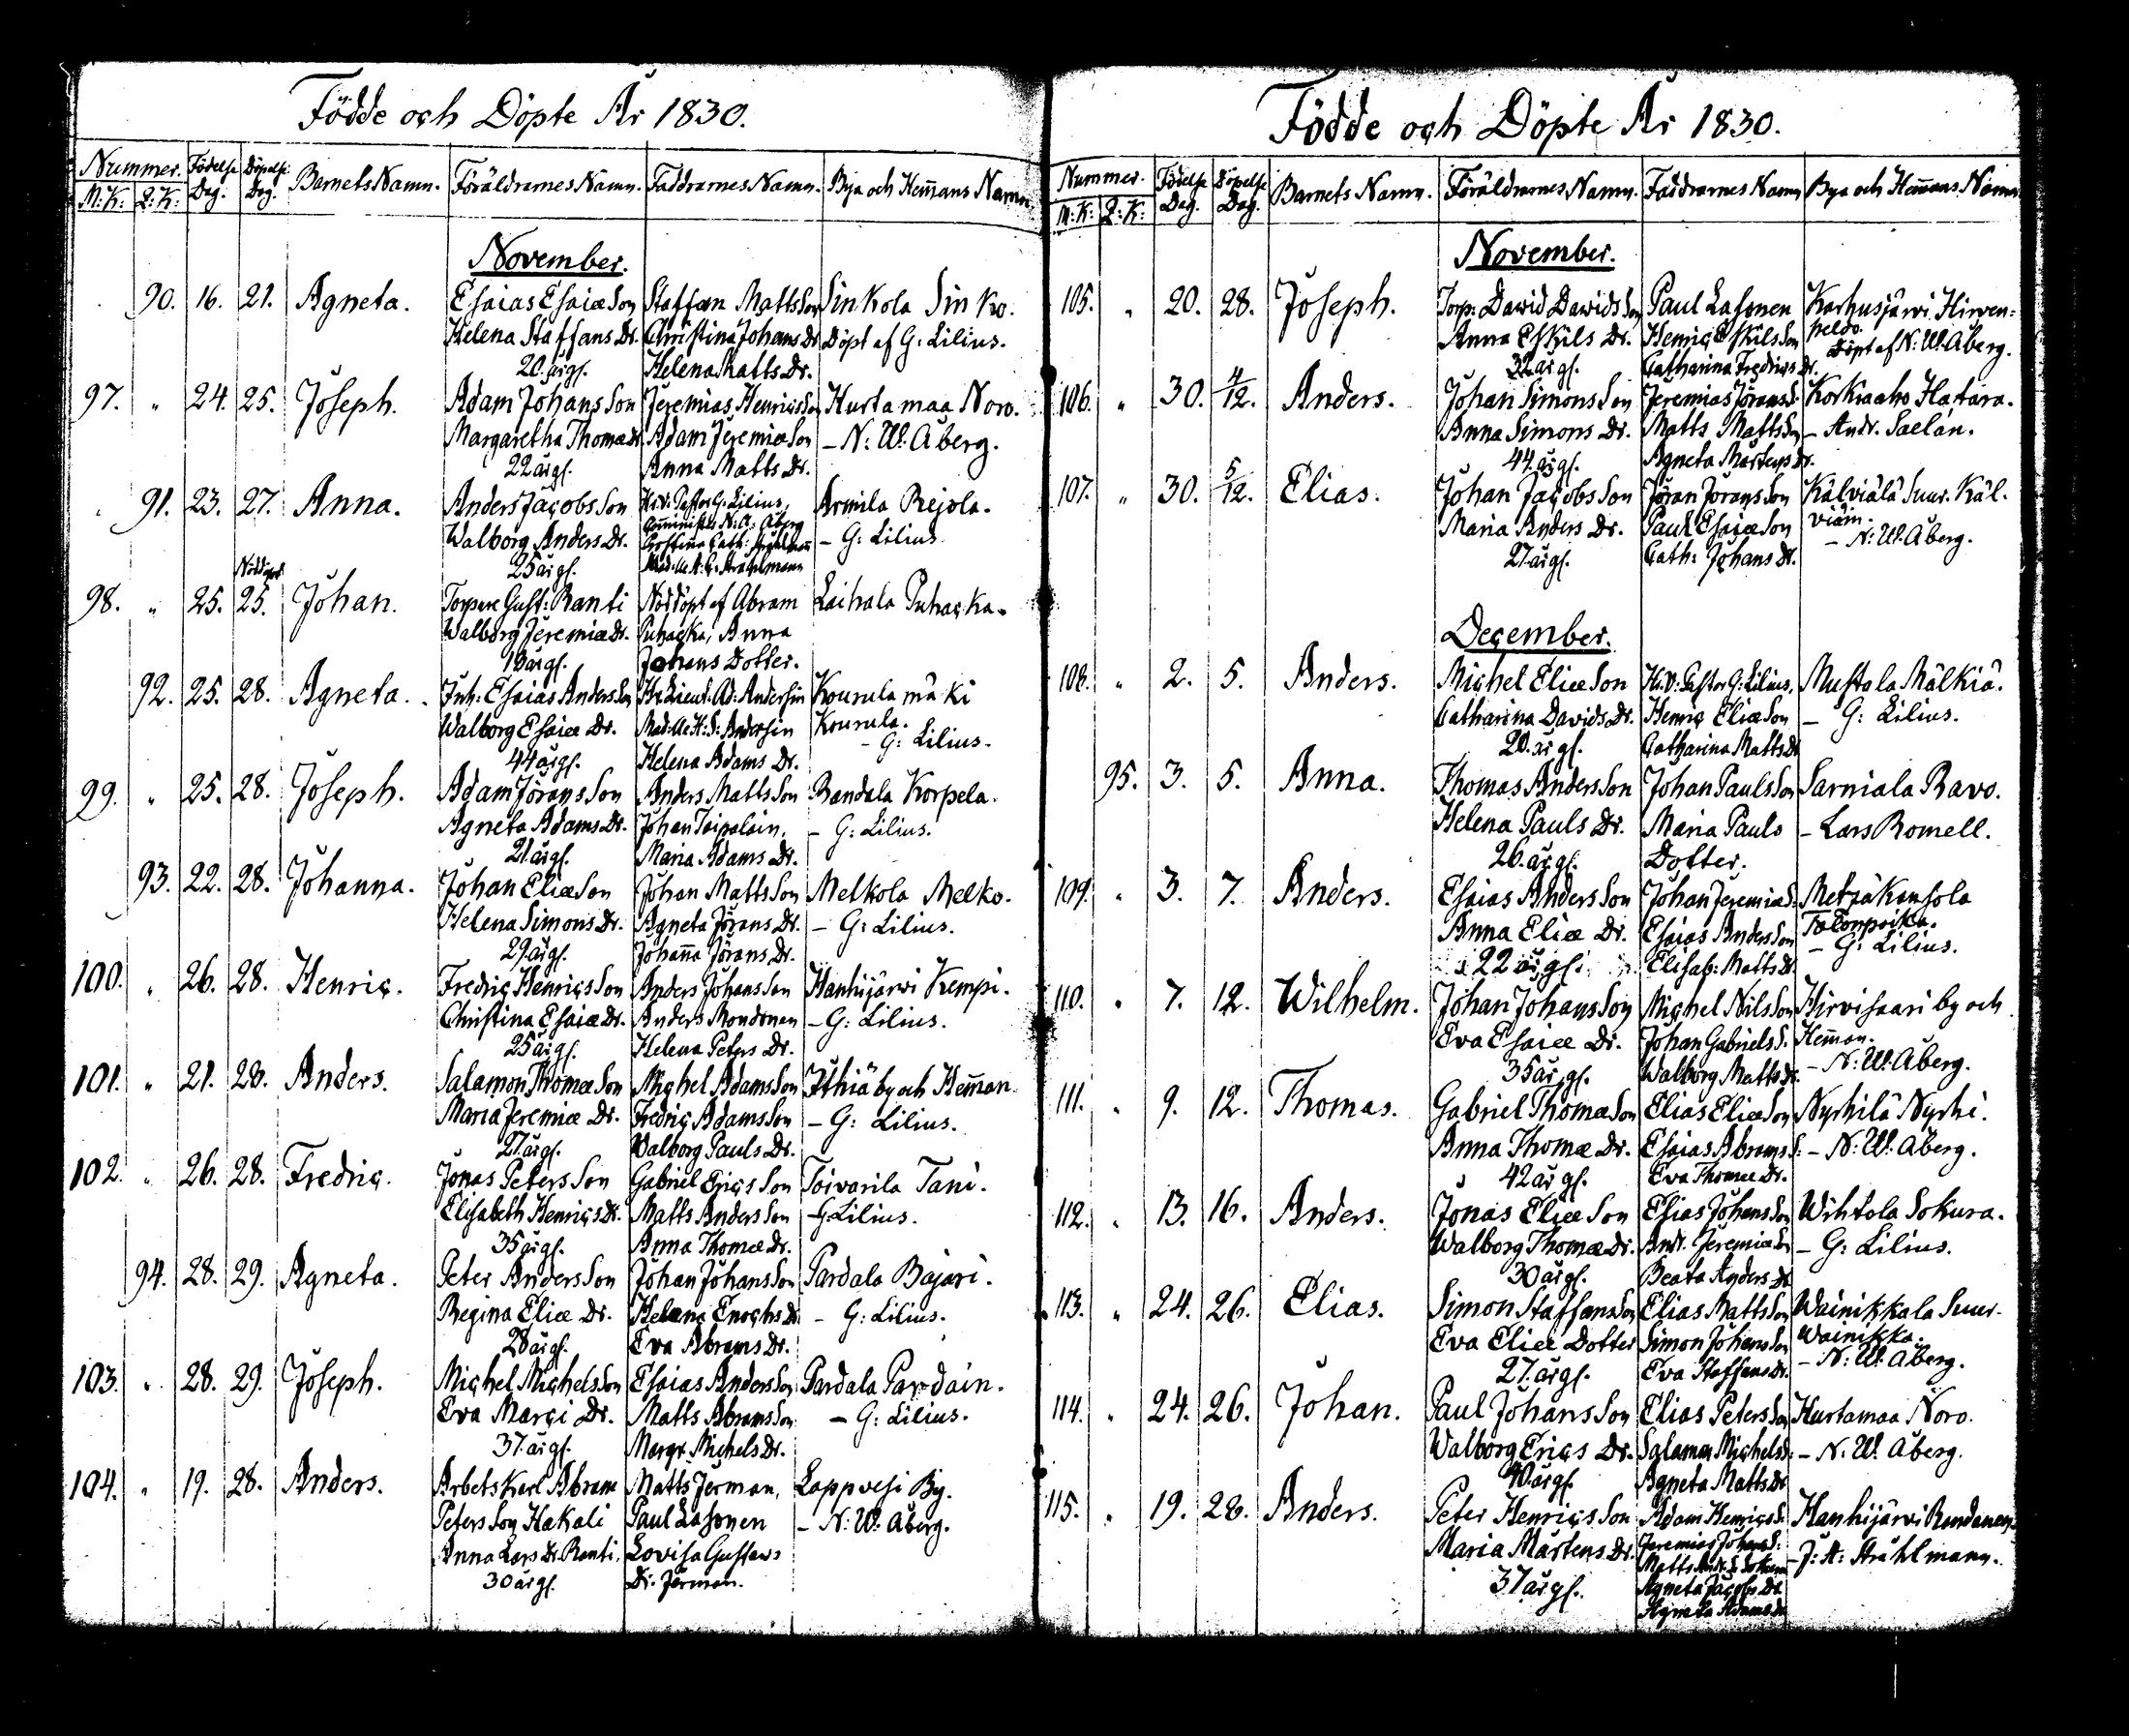 Födde och Döpte År 1830.
Nummer. Födelse Dag. Döpelse Dag. Barnets Namn. Föräldrarnes Namn. Faddrarnes Namn. Bya och Hem̄ans Namn
M:K: Q:K:
November.
90. 16. 21. Agneta. Esaias Esaiæ Son Staffan Matts Son Sinkola Sinko.
Helena Staffans Dr. Christina Johans Dr Döpt af G: Lilius.
20 årgs. Helena Matts Dr.
97. " 24. 25. Joseph. Adam Johans Son Jeremias Henrics Son Hurtamaa Noro.
Margaretha Thomæ Dr. Adam Jeremiæ Son – N: W: Åberg.
22 årgs. Anna Matts Dr.
91. 23. 27. Anna. Anders Jacobs Son H:r V: Pastor G: Lilius, Armila Rejola.
Walborg Anders Dr. N: Åberg – G: Lilius
25 årgs. Christina Cath: Strahlmann
Mad:lle Strahlmann
98. " 25. Nöddöpt 25. Johan. Torpare Gust: Ranti Nöddöpt af Abram Laihala Puhacka.
Walborg Jeremiæ Dr. Puhacka, Anna
Johans Dotter.
92. 25. 28. Agneta. Inh: Esaias Anders Son Hr Lieut. Ad: Andersin Kourula mäki
Walborg Esaiæ Dr. Mad:lle H: S: Andersin Kourula.
44 årgs. Helena Adams Dr. – G: Lilius.
99. " 25. 28. Joseph. Adam Jörans Son Anders Matts Son Randala Korpela.
Agneta Adams Dr. Johan Toipalain, – G: Lilius.
21 årgs. Maria Adams Dr.
93. 22. 28. Johanna. Johan Eliæ Son Johan Matts Son Melkola Melko.
Helena Simons Dr. Agneta Jörans Dr. – G: Lilius.
29 årgs. Johan̄a Jörans Dr.
100. " 26. 28. Henric. Fredric Henrics Son Anders Johans Son Hanhijärvi Kempi.
Christina Esaiæ Dr. Anders Mondonen – G: Lilius.
25 årgs. Helena Peters Dr.
101. " 21. 28. Anders. Salamon Thomæ Son Michel Adams Son Ithiä by och Hem̄an.
Maria Jeremiæ Dr. Fredric Adams Son – G: Lilius.
27 årgs. Walborg Pauls Dr.
102. " 26. 28. Fredric. Jonas Peters Son Gabriel Erics Son Toivarila Tani.
Elisabeth Henrics Dr. Matts Anders Son – G: Lilius.
35 årgs. Anna Thomæ Dr.
94. 28. 29. Agneta. Peter Anders Son Johan Johans Son Pardala Bajari.
Regina Eliæ Dr. Helena Enochs Dr – G: Lilius.
28 årgs. Eva Abrams Dr.
103. " 28. 29. Joseph. Michel Michels Son Esaias Anders Son Pardala Pardain.
Eva Marci Dr. Matts Abrams Son – G: Lilius.
37 årgs. Margr. Michels Dr.
104. " 19. 28. Anders. Arbets Karl Abram Matts Jerman, Lappvesi By.
Peters Son Hakali Paul Lasonen – N: W: Åberg.
Anna Lars Dr. Ranti, Lovisa Gustavs
30 årgs. Dr: Jerman.
Födde och Döpte År 1830.
Nummer. Födelse Dag. Döpelse Dag. Barnets Namn. Föräldrarnes Namn. Faddrarnes Namn Bya och Hem̄ans Namn
M:K: Q:K:
November.
105. " 20. 28. Joseph. Torp: Dawid Dawids Son Paul Lasonen Karhusjärvi Hirven=
Anna Eskils Dr. Henric Eskils Son peldo.
32 årgs. Catharina Fredrics Dr. Döpt af N: W: Åberg.
106. " 30. 4/12. Anders. Johan Simons Son Jeremias Jörans S. Korkiaaho Hatara.
Anna Simons Dr. Matts Matts Son – Andr. Saelan.
44 årgs. Agneta Mårtens Dr.
107. " 30. 5/12. Elias. Johan Jacobs Son Jöran Jörans Son Kälviälä Suur. Käl-
Maria Anders Dr. Paul Esaiæ Son viäin.
27 årgs. Cath: Johans Dr. – N: W: Åberg.
December.
108. " 2. 5. Anders. Michel Eliæ Son H:r V: Pastor G: Lilius, Mustola Mälkiä.
Catharina Davids Dr. Henric Eliæ Son – G: Lilius.
20 årgs. Catharina Matts Dr
95. 3. 5. Anna. Thomas Anders Son Johan Pauls Son Sarniala Ravo.
Helena Pauls Dr. Maria Pauls – Lars Romell.
26 årgs. Dotter.
109. " 3. 7. Anders. Esaias Anders Son Johan Jeremiæ S. Metzäkansola
Anna Eliæ Dr. Esaias Anders Son Talonpoika.
22 årgs. Elisab: Matts Dr. – G: Lilius.
110. " 7. 12. Wilhelm. Johan Johans Son Michel Nils Son Hirvisaari by och
Eva Esaiæ Dr. Johan Gabriels S. Hem̄an.
35 årgs. Walborg Matts Dr. – N: W: Åberg.
111. " 9. 12. Thomas. Gabriel Thomæ Son Elias Eliæ Son Nyrhilä Nyrhi.
Anna Thomæ Dr. Esaias Abrams S: – N: W: Åberg.
42 årgs. Eva Thomæ Dr.
112. " 13. 16. Anders. Jonas Eliæ Son Elias Johans Son Wihtola Sokura.
Walborg Thomæ Dr. Andr. Jeremiæ Son – G: Lilius.
30 årgs. Beata Anders Dr
113. " 24. 26. Elias. Simon Staffans Son Elias Matts Son Wainikkala Suur-
Eva Eliæ Dotter Simon Johans Son Wainikka.
27 årgs. Eva Staffans Dr. – N: W: Åberg.
114. " 24. 26. Johan. Paul Johans Son Elias Peters Son Hurtamaa Noro.
Walborg Erics Dr. Salamon Michels S: – N: W: Åberg.
40 årgs. Agneta Matts Dr
115. " 19. 28. Anders. Peter Henrics Son Adam Henrics S: Hanhijärvi Rondanen
Maria Mårtens Dr. Jeremias Johans S: – J: H: Strahlmann.
37 årgs. Matts
Agneta Jacobs Dr.
Agneta Adams Dr